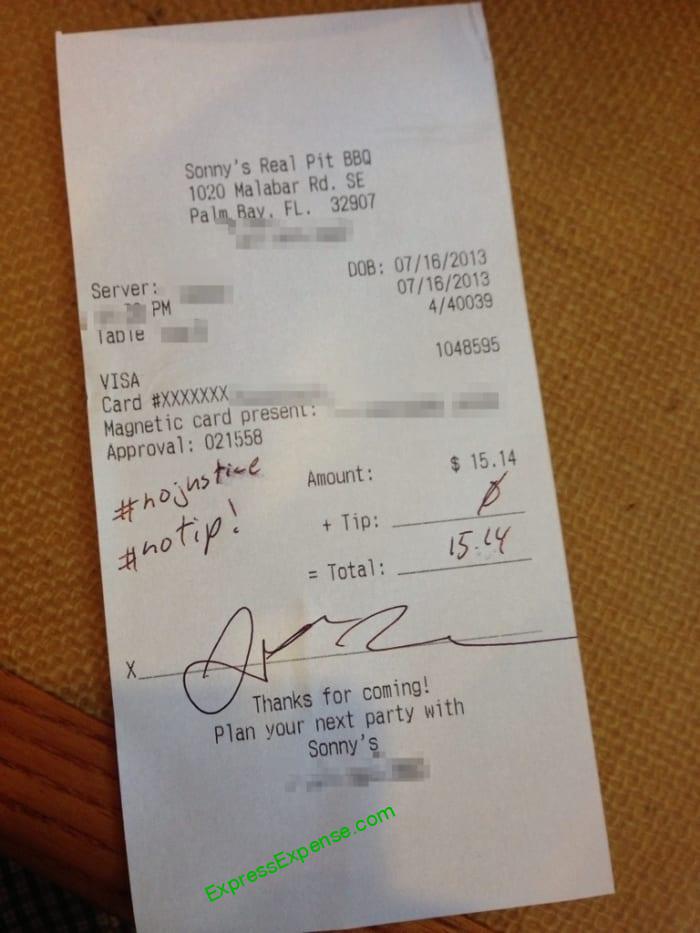 Sonny's Real Pit BBQ
1020 Malabar Rd. SE
Palm Bay, FL. 32907
DOB: 07/16/2013
Server:
07/16/2013
PM
4/40039
Table
1048595
VISA
Card #XXXXXXX
Magnetic card present:
Approval: 021558
#nojustice
Amount: $ 15.14
#notip!
+ Tip: Ø
= Total: 15.14
X
Thanks for coming!
Plan your next party with
Sonny's
ExpressExpense.com